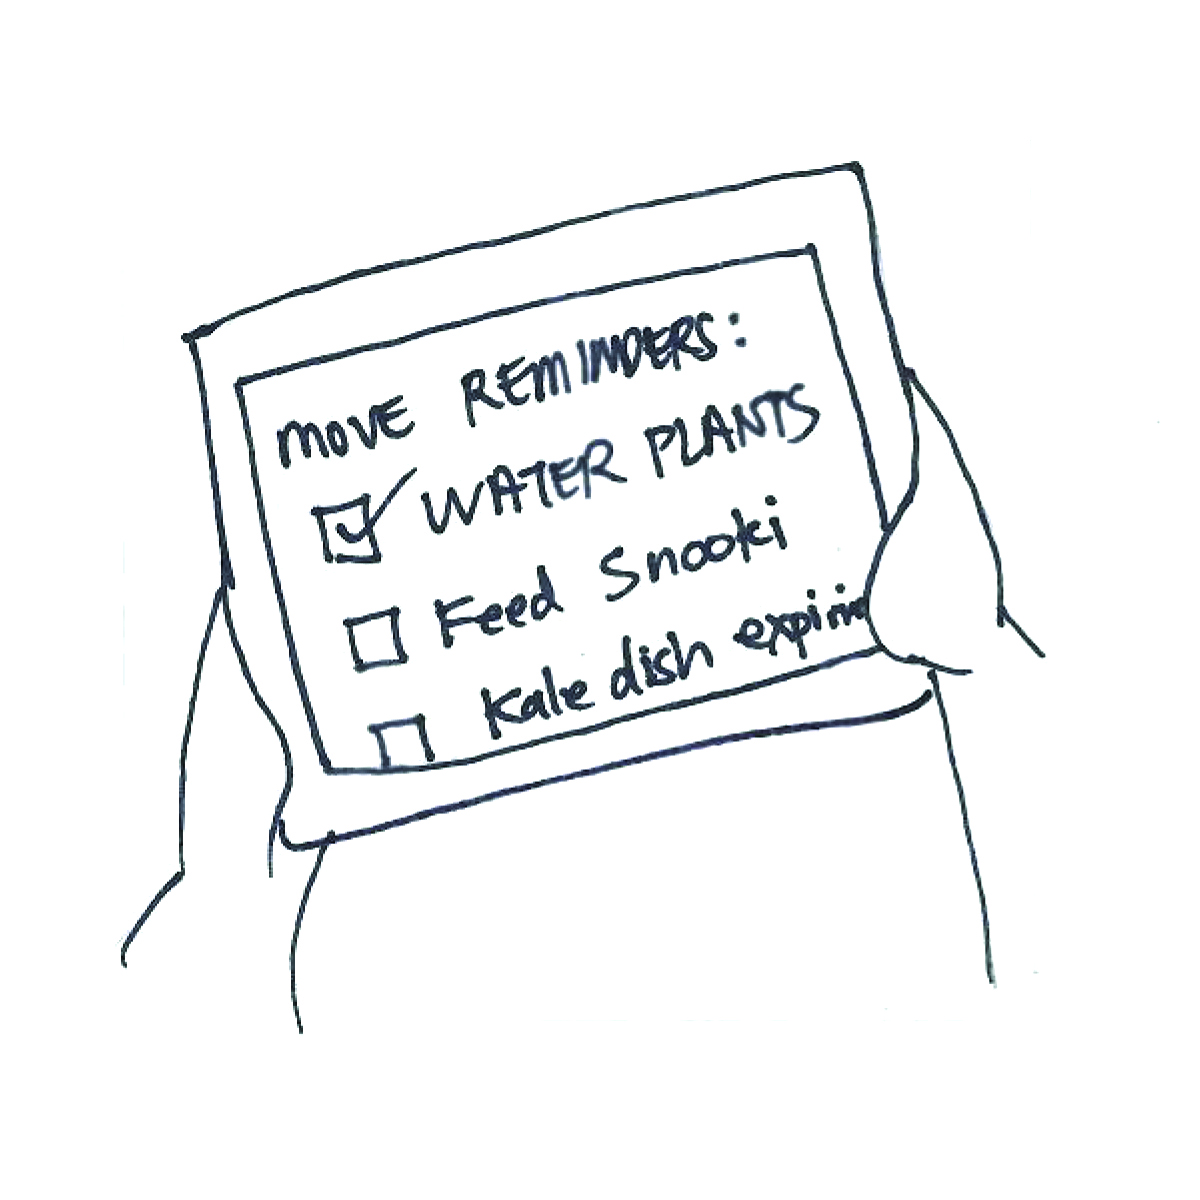 MOVE REMINDERS:
WATER PLANTS
Feed Snooki
Kale dish